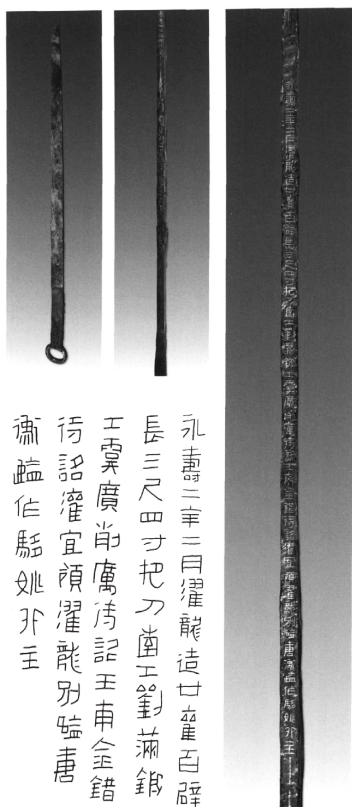 永壽二年二月濯龍造廿雚百辟
長三尺四寸把刀堂工劉滿鍛
工虞廣削厲待詔王甫金錯
待詔灌宜領濯龍別監唐
衡監作姚北主